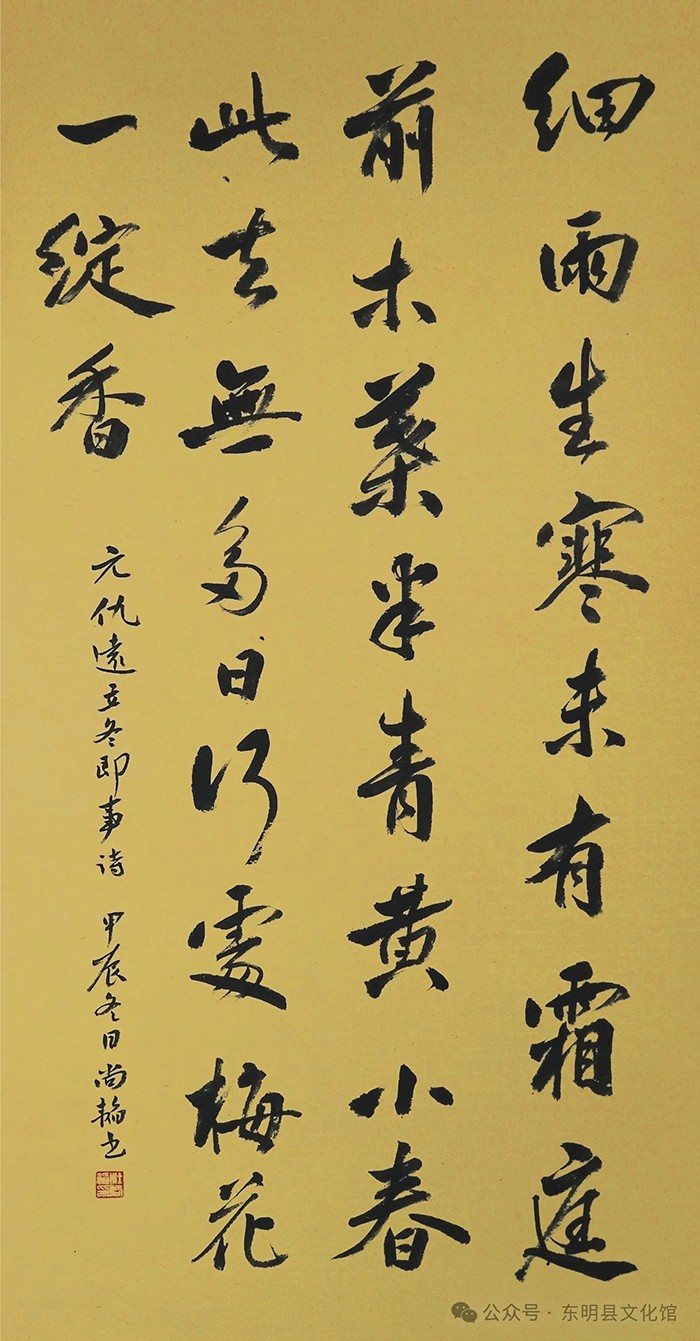 细雨生寒未有霜庭
前木葉半青黄小春
此去無多日何處梅花
一绽香
元仇遠立冬即事诗 甲辰冬日尚书
公众号·东明县文化馆